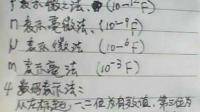 f 表示微微法 (10⁻¹²F)
n 表示毫微法, (10⁻⁹F)
μ 表示微法 (10⁻⁶F)
m 表示毫法 (10⁻³F)
4 数码表示法:
从左标起,一二位为有效值,第三位为